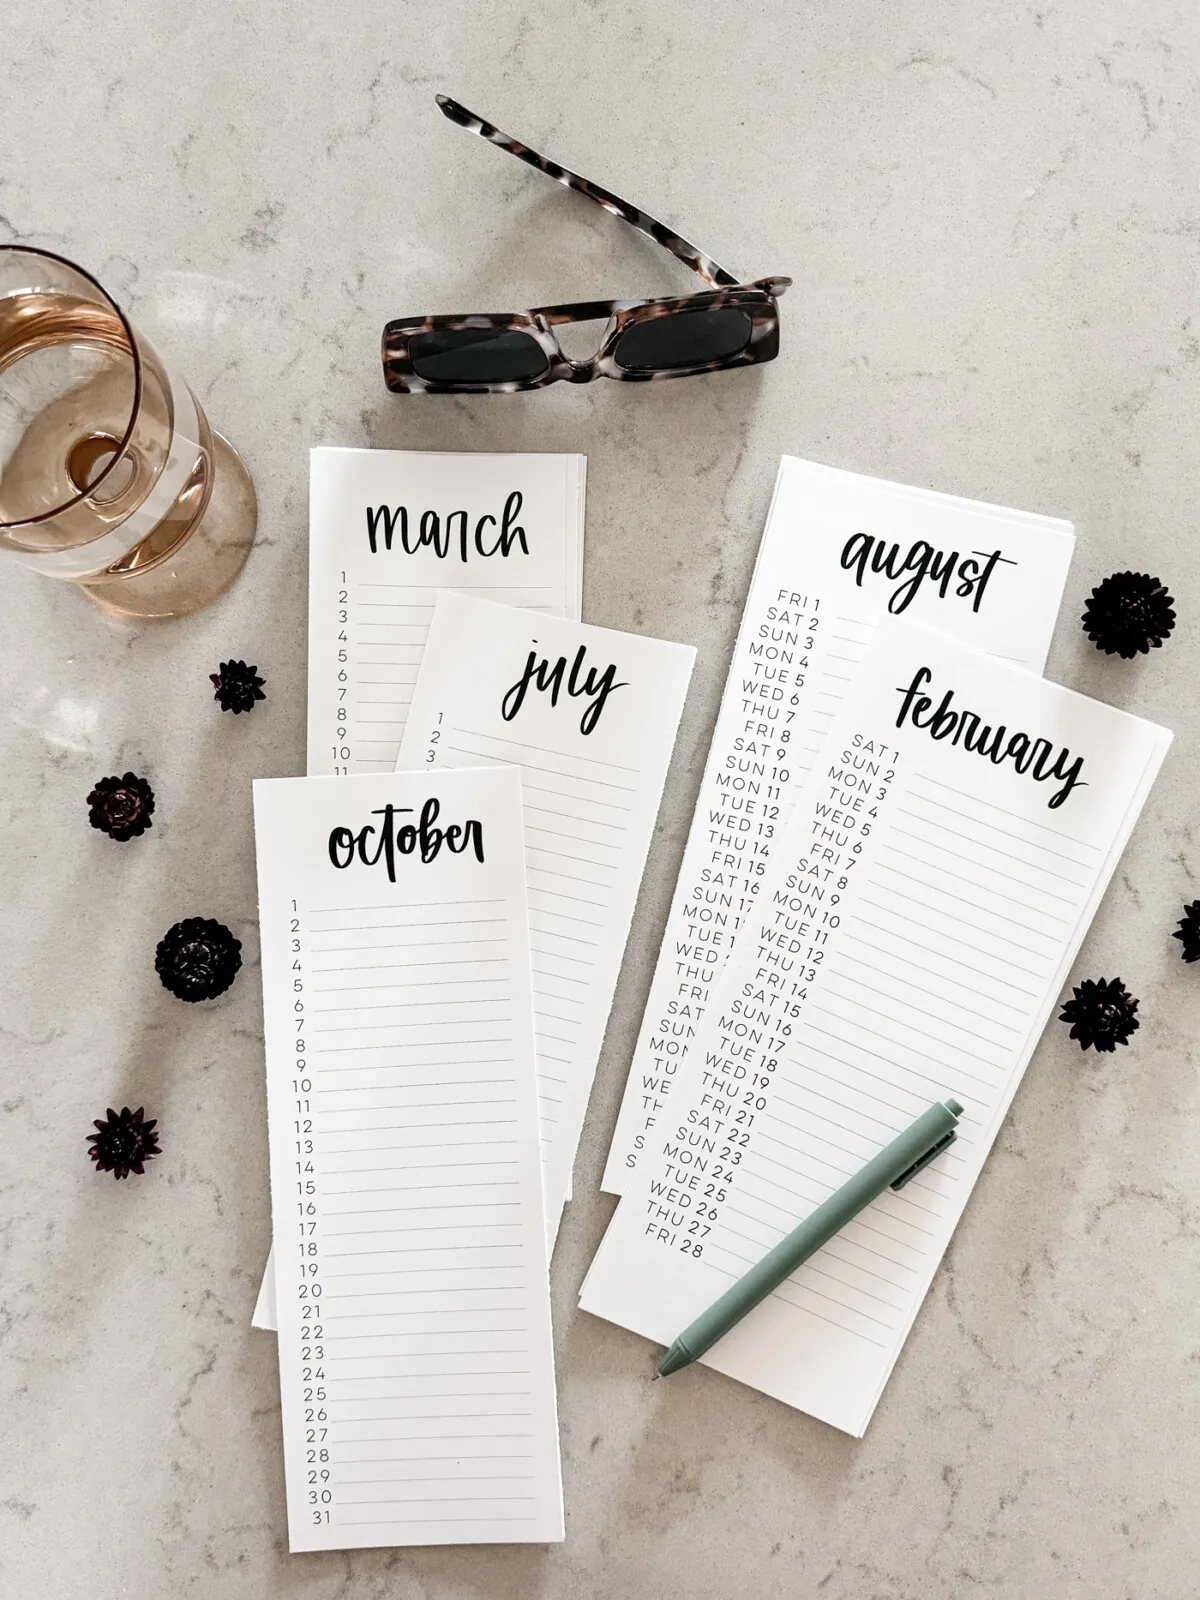 march
1
2
3
4
5
6
7
8
9
10
11
july
1
2
3
october
1
2
3
4
5
6
7
8
9
10
11
12
13
14
15
16
17
18
19
20
21
22
23
24
25
26
27
28
29
30
31
august
FRI 1
SAT 2
SUN 3
MON 4
TUE 5
WED 6
THU 7
FRI 8
SAT 9
SUN 10
MON 11
TUE 12
WED 13
THU 14
FRI 15
SAT 16
SUN 17
MON 1
TUE 1
WED
THU
FRI
SAT
SUN
MON
TU
WE
TH
F
S
S
february
SAT 1
SUN 2
MON 3
TUE 4
WED 5
THU 6
FRI 7
SAT 8
SUN 9
MON 10
TUE 11
WED 12
THU 13
FRI 14
SAT 15
SUN 16
MON 17
TUE 18
WED 19
THU 20
FRI 21
SAT 22
SUN 23
MON 24
TUE 25
WED 26
THU 27
FRI 28